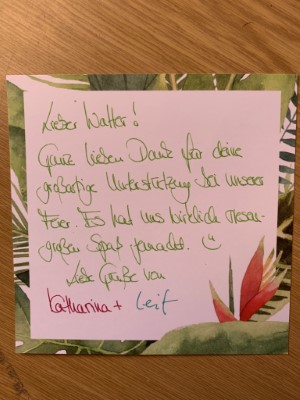 Lieber Walter!
Ganz lieben Dank für deine
großartige Unterstützung bei unserer
Feier. Es hat uns wirklich riesen-
großen Spaß gemacht. ☺
Liebe Grüße von
Katharina + Leif